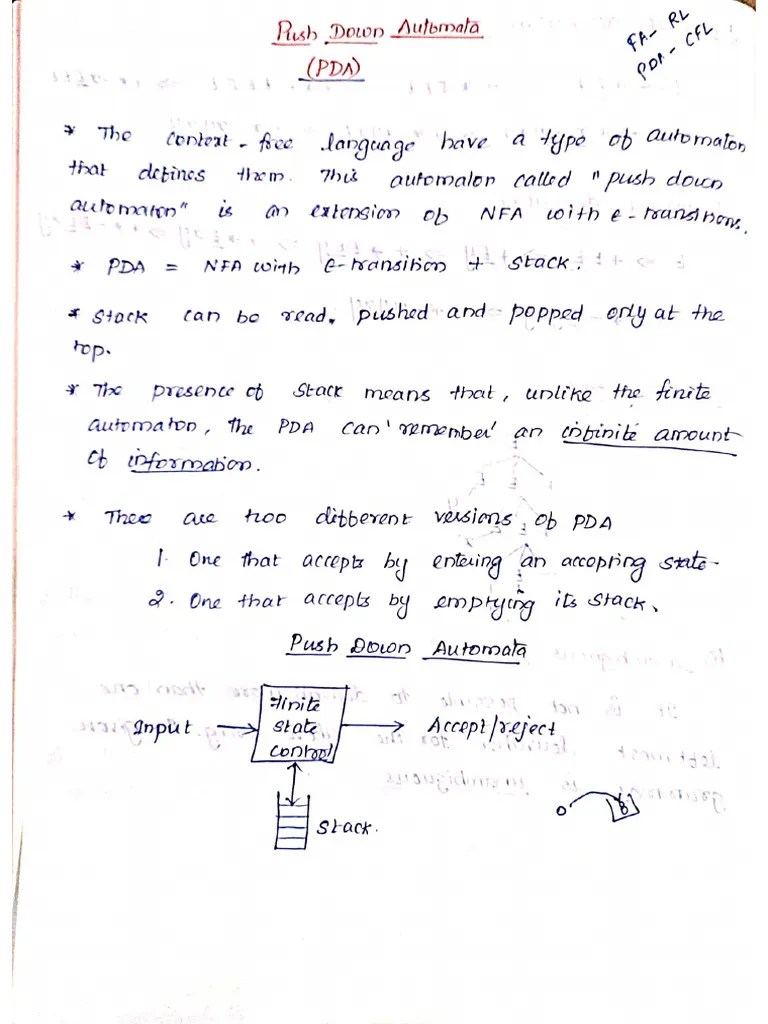 Push Down Automata
(PDA)
FA - RL
PDA - CFL
* The context-free language have a type of automaton
that defines them. This automaton called "push down
automaton" is an extension of NFA with ε-transitions.
* PDA = NFA with ε-transition + Stack.
* Stack can be read, pushed and popped only at the
top.
* The presence of stack means that, unlike the finite
automaton, the PDA can 'remember' an infinite amount
of information.
* There are two different versions of PDA
1. One that accepts by entering an accepting state-
2. One that accepts by emptying its stack.
Push Down Automata
Input
finite
state
control
Accept/reject
Stack.